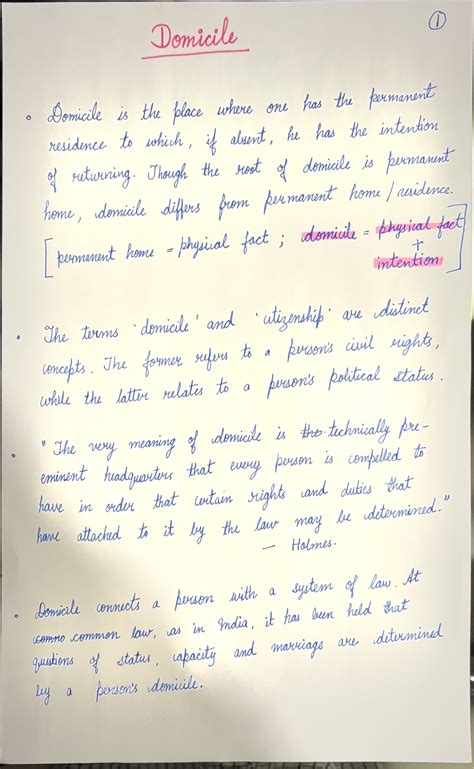 ①
Domicile
• Domicile is the place where one has the permanent
residence to which, if absent, he has the intention
of returning. Though the root of domicile is permanent
home, domicile differs from permanent home / residence.
[permanent home = physical fact ; domicile = physical fact
+
intention]
• The terms 'domicile' and 'citizenship' are distinct
concepts. The former refers to a person's civil rights,
while the latter relates to a person's political status.
• "The very meaning of domicile is the technically pre-
eminent headquarters that every person is compelled to
have in order that certain rights and duties that
have attached to it by the law may be determined."
— Holmes.
• Domicile connects a person with a system of law. At
commo common law, as in India, it has been held that
questions of status, capacity and marriage are determined
by a person's domicile.